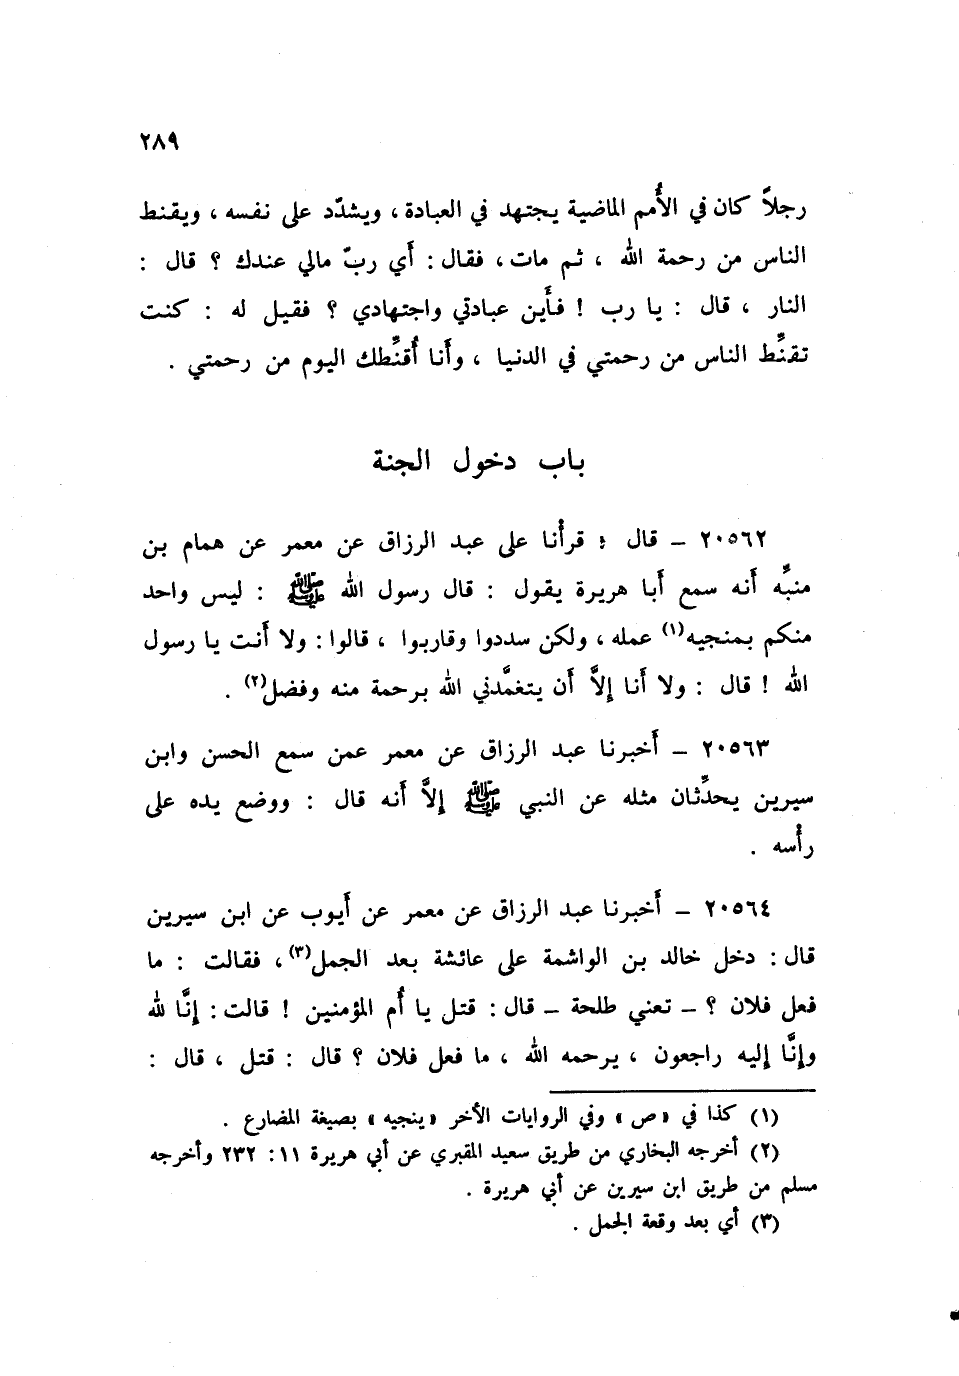 ٢٨٩
رجلاً كان في الأُمم الماضية يجتهد في العبادة ، ويشدّد على نفسه ، ويقنط
الناس من رحمة الله ، ثم مات ، فقال : أَي ربّ مالي عندك ؟ قال :
النار ، قال : يا رب ! فأَين عبادتي واجتهادي ؟ فقيل له : كنت
تقنِّط الناس من رحمتي في الدنيا ، وأَنا أُقنِّطك اليوم من رحمتي .
باب دخول الجنة
٢٠٥٦٢ – قال : قرأنا على عبد الرزاق عن معمر عن همام بن
منبِّه أَنه سمع أَبا هريرة يقول : قال رسول الله ﷺ : ليس واحد
منكم بمنجيه(١) عمله ، ولكن سددوا وقاربوا ، قالوا : ولا أَنت يا رسول
الله ! قال : ولا أَنا إلاَّ أَن يتغمَّدني الله برحمة منه وفضل(٢) .
٢٠٥٦٣ – أَخبرنا عبد الرزاق عن معمر عمن سمع الحسن وابن
سيرين يحدِّثان مثله عن النبي ﷺ إلاَّ أَنه قال : ووضع يده على
رأْسه .
٢٠٥٦٤ – أَخبرنا عبد الرزاق عن معمر عن أَيوب عن ابن سيرين
قال : دخل خالد بن الواشمة على عائشة بعد الجمل(٣) ، فقالت : ما
فعل فلان ؟ – تعني طلحة – قال : قتل يا أُم المؤمنين ! قالت : إنَّا لله
وإنَّا إليه راجعون ، يرحمه الله ، ما فعل فلان ؟ قال : قتل ، قال :
(١) كذا في «ص» وفي الروايات الأخر «ينجيه» بصيغة المضارع .
(٢) أخرجه البخاري من طريق سعيد المقبري عن أبي هريرة ١١ : ٢٣٢ وأخرجه
مسلم من طريق ابن سيرين عن أبي هريرة .
(٣) أي بعد وقعة الجمل .